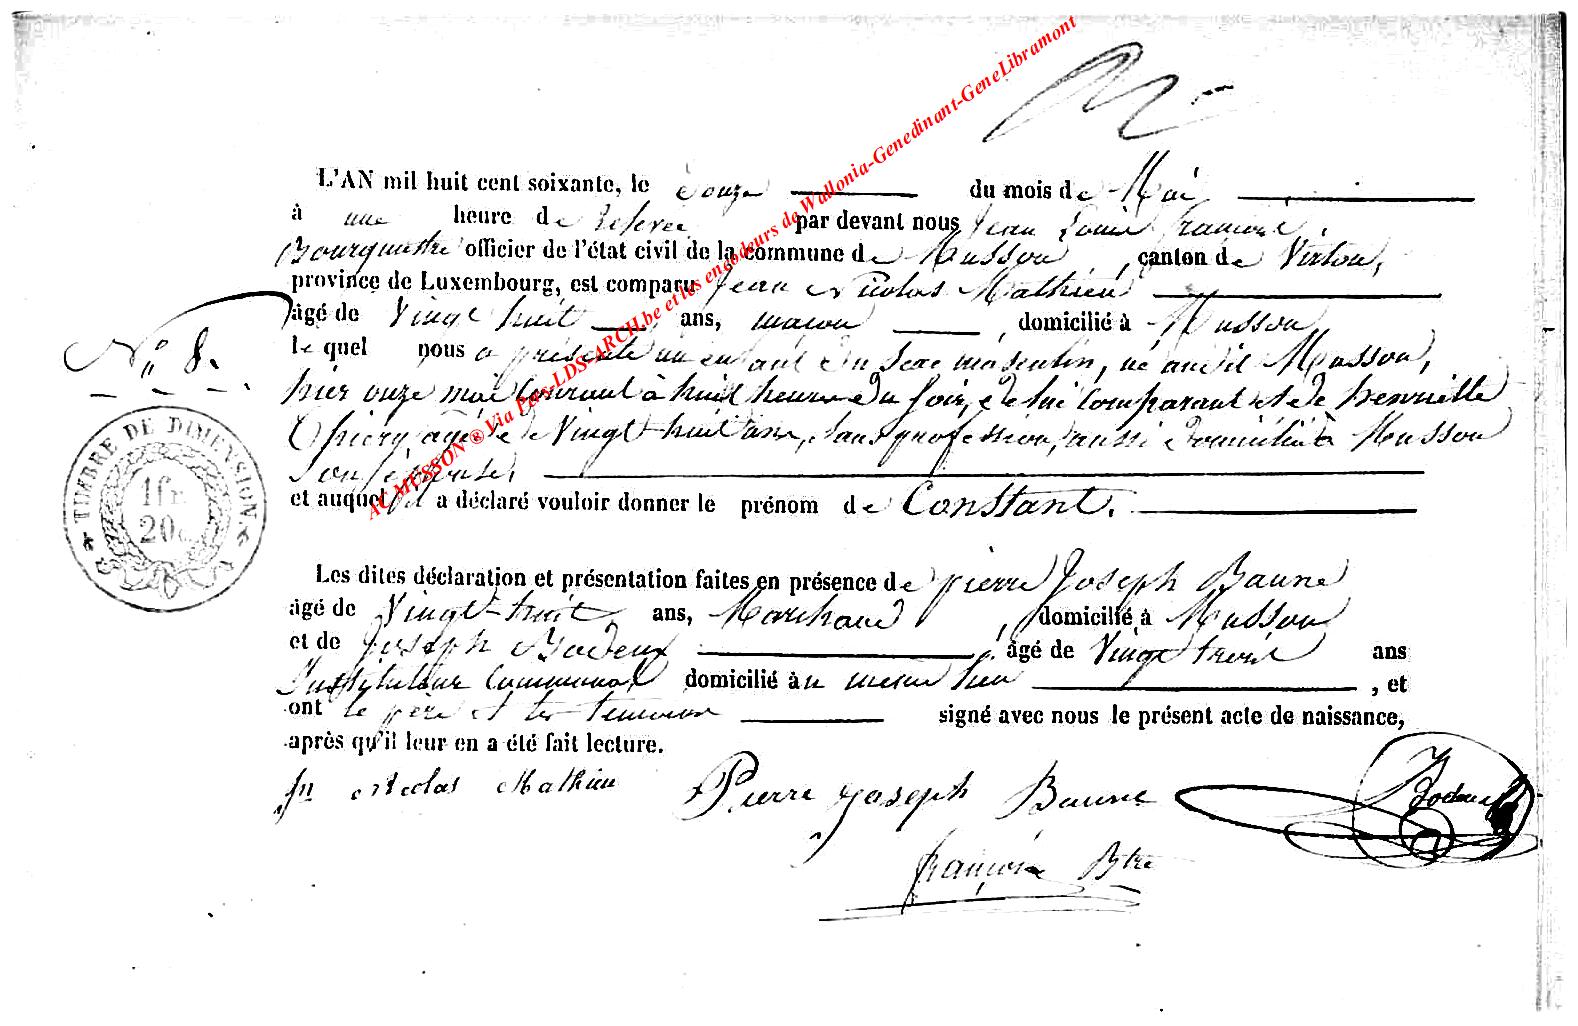 L'AN mil huit cent soixante, le douze du mois de Mai
à une heure de relevée par devant nous Jean Louis François,
Bourgmestre officier de l'état civil de la commune de Musson, canton de Virton,
province de Luxembourg, est comparu Jean Nicolas Mathieu
âgé de Vingt huit ans, maçon, domicilié à Musson,
le quel nous a présenté un enfant du sexe masculin, né audit Musson,
N° 8.
hier onze mai courant à huit heures du soir, de lui comparant et de henriette
Thiery agée de Vingt-huit ans, sans profession, aussi domiciliée à Musson
son épouse,
et auquel il a déclaré vouloir donner le prénom de Constant.
TIMBRE DE DIMENSION
1 fr.
20c
Les dites déclaration et présentation faites en présence de pierre Joseph Baune
âgé de Vingt-huit ans, Marchand, domicilié à Musson
et de Joseph Bodeux, âgé de Vingt trois ans
Instituteur Communal domicilié au même lieu, et
ont le père et les temoins signé avec nous le présent acte de naissance,
après qu'il leur en a été fait lecture.
Jn Nicolas Mathieu Pierre Joseph Baune Bodeux
François Btre
AC MUSSON ® Via Pers-LDS-ARCH.be et les encodeurs de Wallonia-Genedinant-GeneLibramont